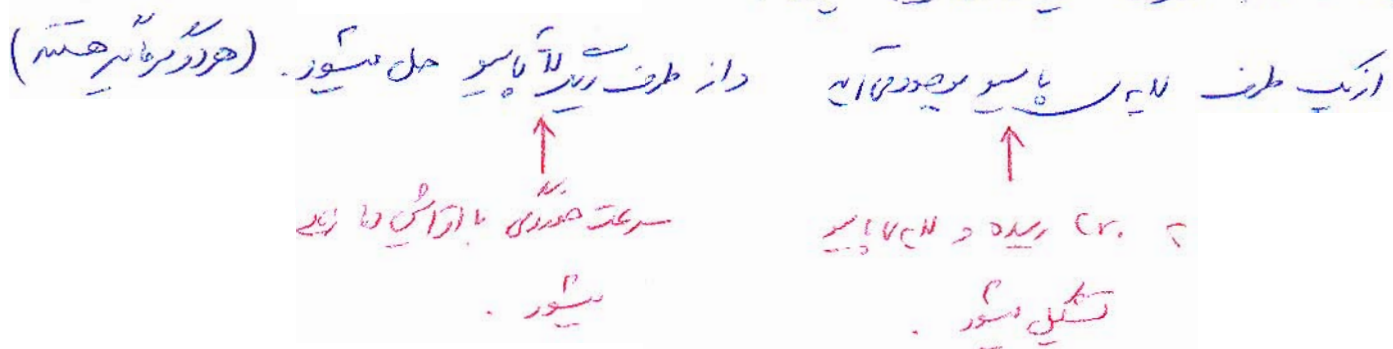 از یک طرف لایه‌ی پاسیو بوجود می‌آید و از طرف دیگر لایه پاسیو حل میشود. (هر دو هستند)
رسیده و لایه پاسیو
تشکیل میشود.
سرعت خوردگی با افزایش دما زیاد
میشود.